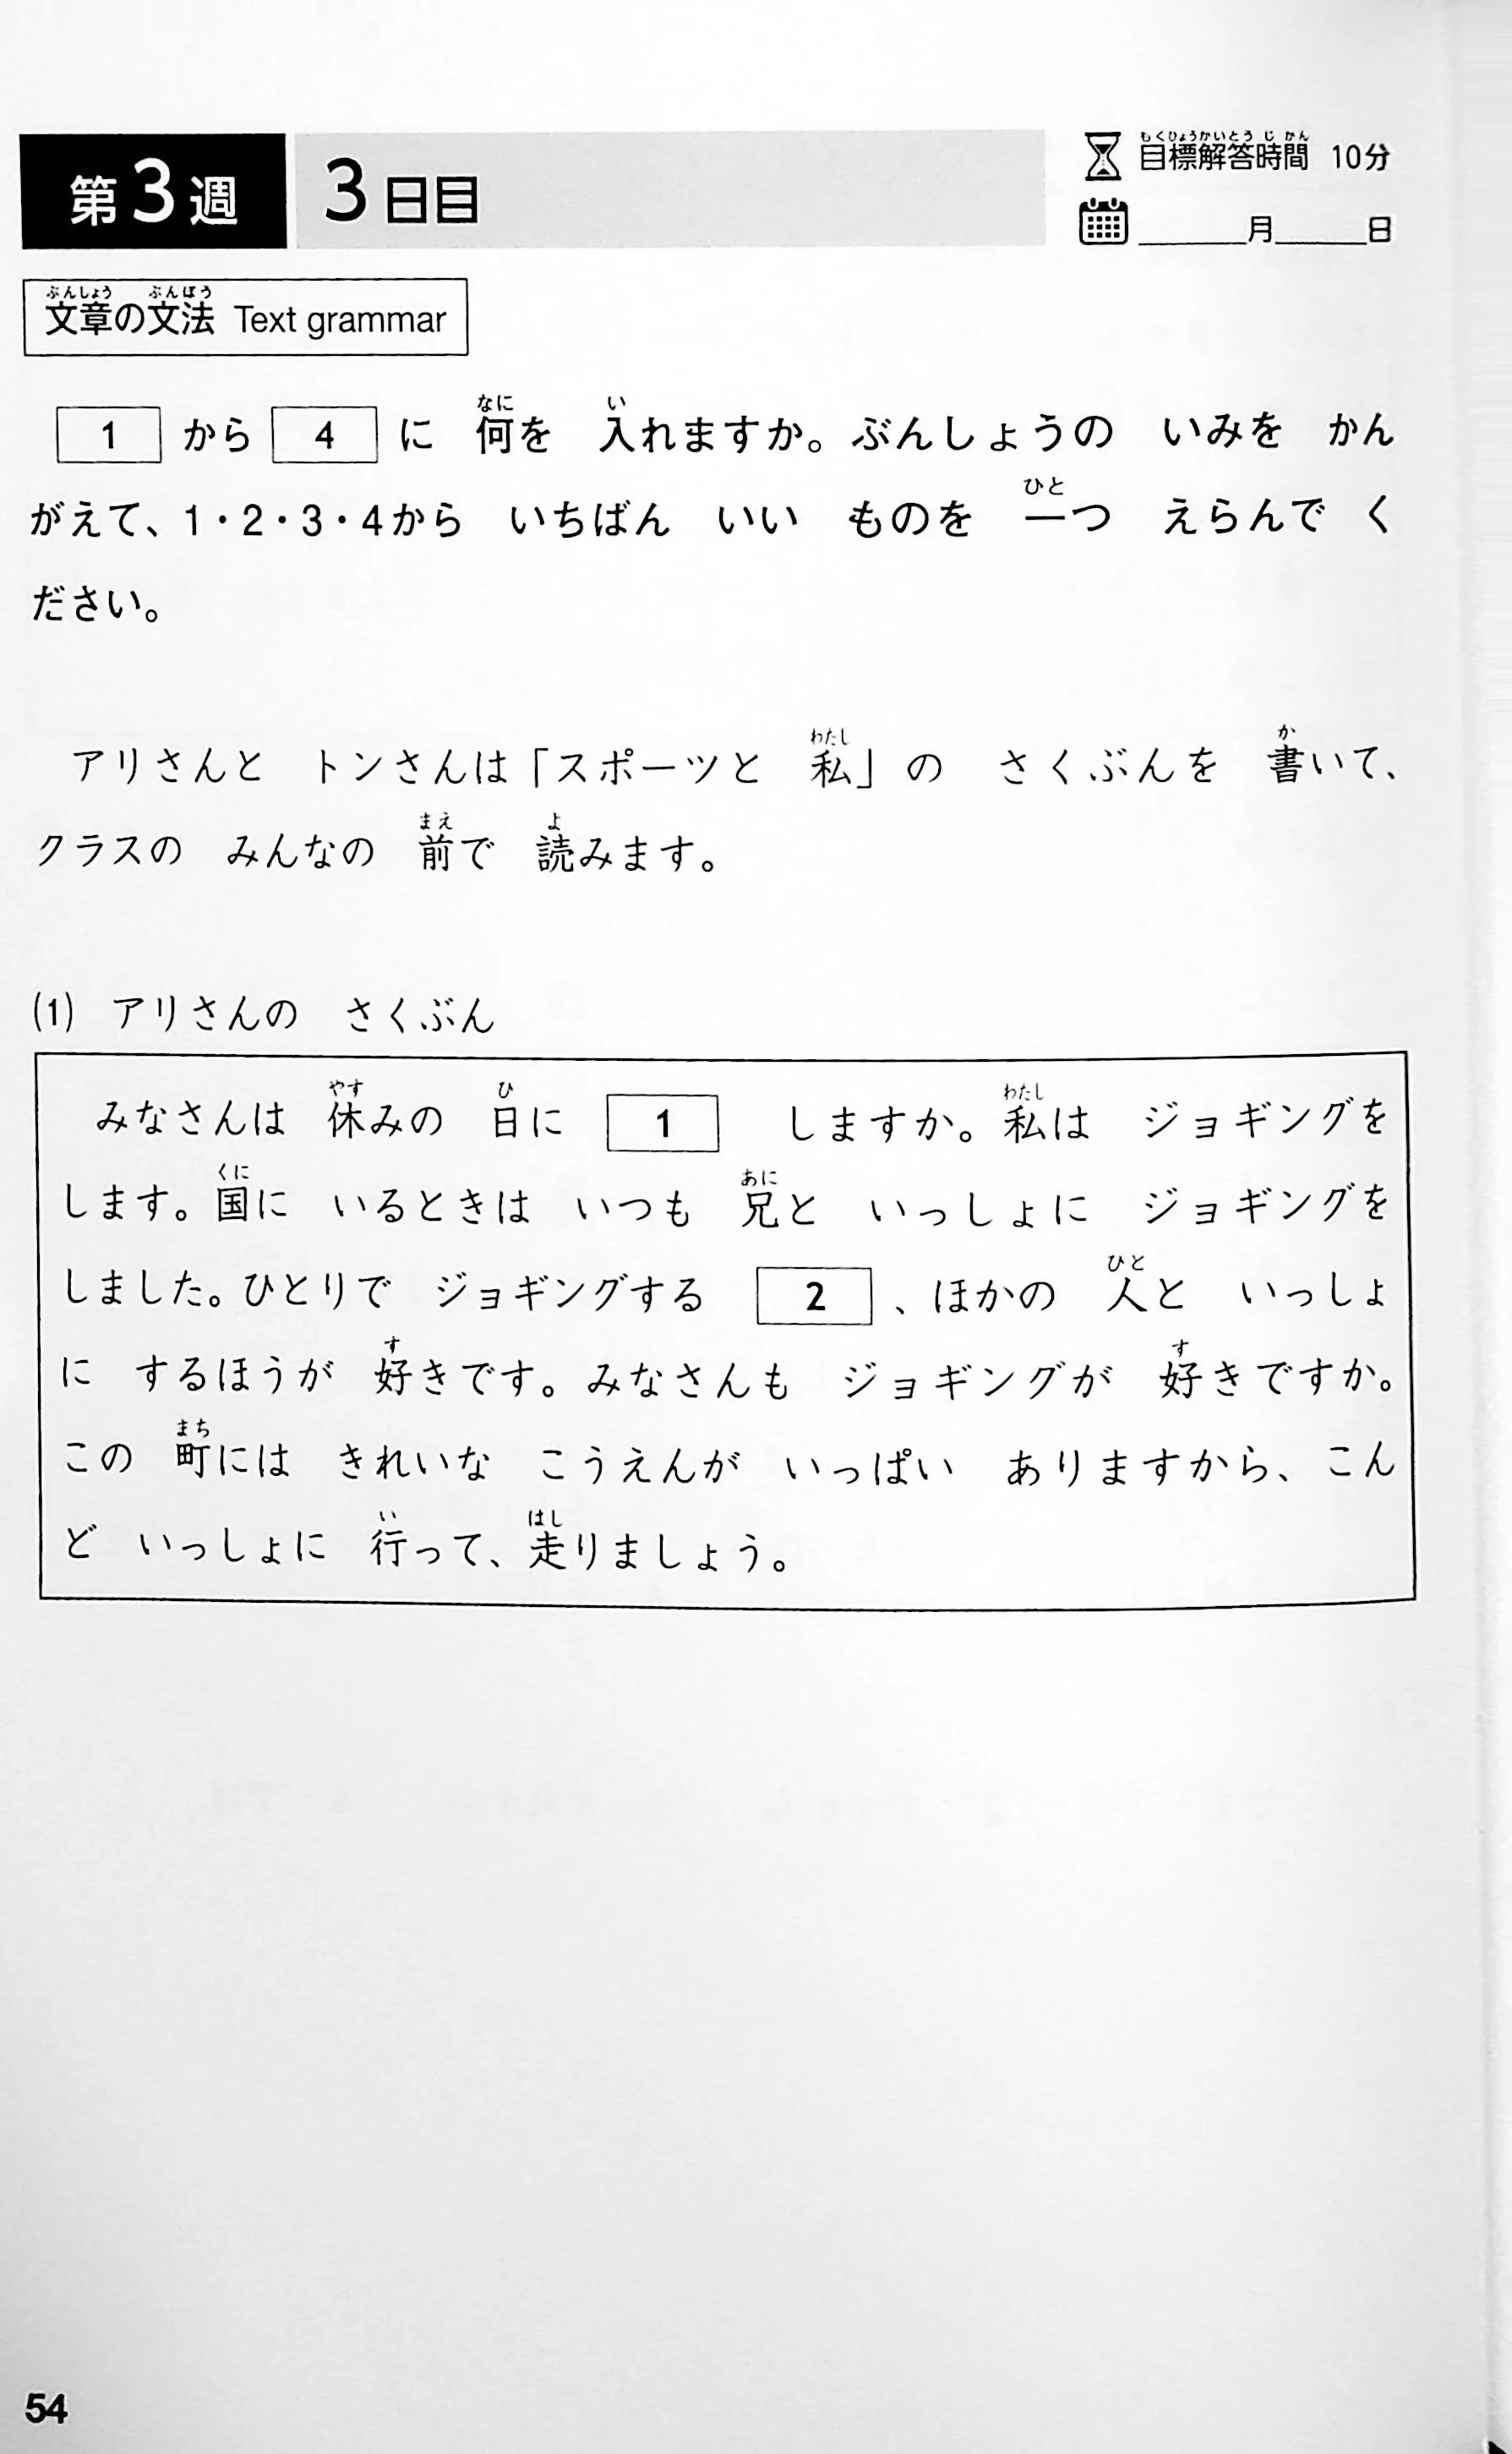 第3週 3日目
もくひょうかいとうじかん
目標解答時間 10分
月 日
ぶんしょう ぶんぽう
文章の文法 Text grammar
なに い
1 から 4 に 何を 入れますか。ぶんしょうの いみを かん
ひと
がえて、1・2・3・4から いちばん いい ものを 一つ えらんで く
ださい。
わたし か
アリさんと トンさんは「スポーツと 私」の さくぶんを 書いて、
まえ よ
クラスの みんなの 前で 読みます。
(1) アリさんの さくぶん
やす ひ わたし
みなさんは 休みの 日に 1 しますか。私は ジョギングを
くに あに
します。国に いるときは いつも 兄と いっしょに ジョギングを
ひと
しました。ひとりで ジョギングする 2 、ほかの 人と いっしょ
す す
に するほうが 好きです。みなさんも ジョギングが 好きですか。
まち
この 町には きれいな こうえんが いっぱい ありますから、こん
い はし
ど いっしょに 行って、走りましょう。
54